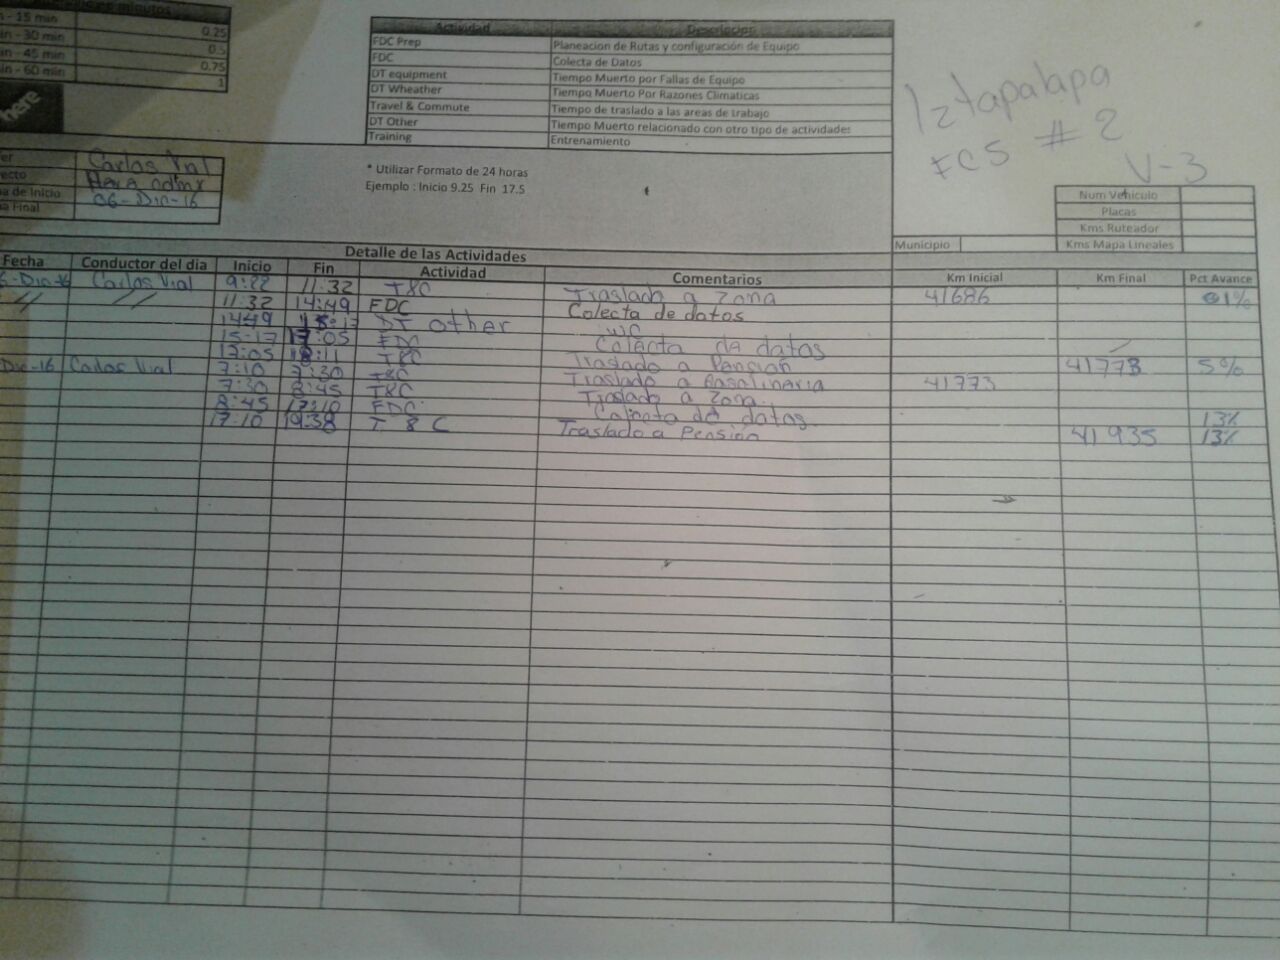 minutos
- 15 min 0.25
- 30 min 0.5
in - 45 min 0.75
in - 60 min 1
here
Actividad Descripcion
FDC Prep Planeacion de Rutas y configuración de Equipo
FDC Colecta de Datos
DT equipment Tiempo Muerto por Fallas de Equipo
DT Wheather Tiempo Muerto Por Razones Climaticas
Travel & Commute Tiempo de traslado a las areas de trabajo
DT Other Tiempo Muerto relacionado con otro tipo de actividades
Training Entrenamiento
Iztapalapa
FCS # 2
V-3
* Utilizar Formato de 24 horas
Ejemplo : Inicio 9.25 Fin 17.5
er Carlos Vial
ecto
a de Inicio 06-Dic-16
a Final
Num Vehiculo
Placas
Kms Ruteador
Municipio Kms Mapa Lineales
Detalle de las Actividades
Fecha Conductor del dia Inicio Fin Actividad Comentarios Km Inicial Km Final Pct Avance
6-Dic-16 Carlos Vial 9:22 11:32 T&C Traslado a Zona 41686 1%
11 11 11:32 14:49 FDC Colecta de datos
14:49 15:17 DT other WC
15:17 17:05 FDC Colecta de datos
17:05 18:11 T&C Traslado a Pensión 41773 5%
Dic-16 Carlos Vial 7:10 7:30 T&C Traslado a Gasolinaria 41773
7:30 8:45 T&C Traslado a Zona.
8:45 17:10 FDC. Colecta de datos. 13%
17:10 19:38 T & C Traslado a Pensión 41935 13%